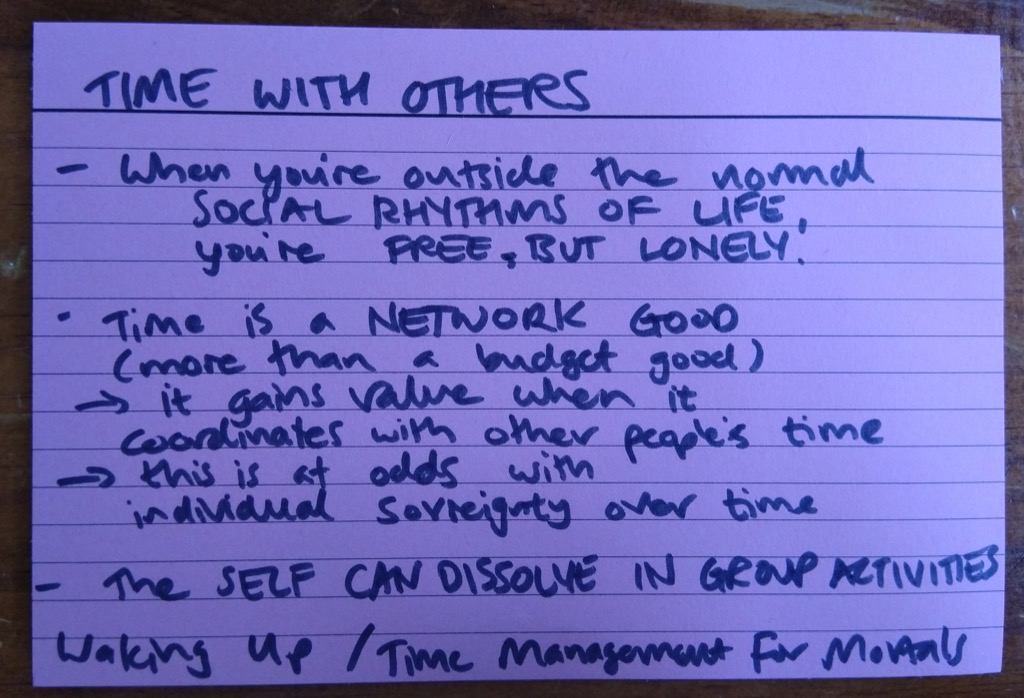 TIME WITH OTHERS
- When you're outside the normal
SOCIAL RHYTHMS OF LIFE,
you're FREE, BUT LONELY!
- Time is a NETWORK GOOD
(more than a budget good)
→ it gains value when it
coordinates with other people's time
→ this is at odds with
individual sovreignty over time
- The SELF CAN DISSOLVE IN GROUP ACTIVITIES
Waking Up / Time Management for Mortals